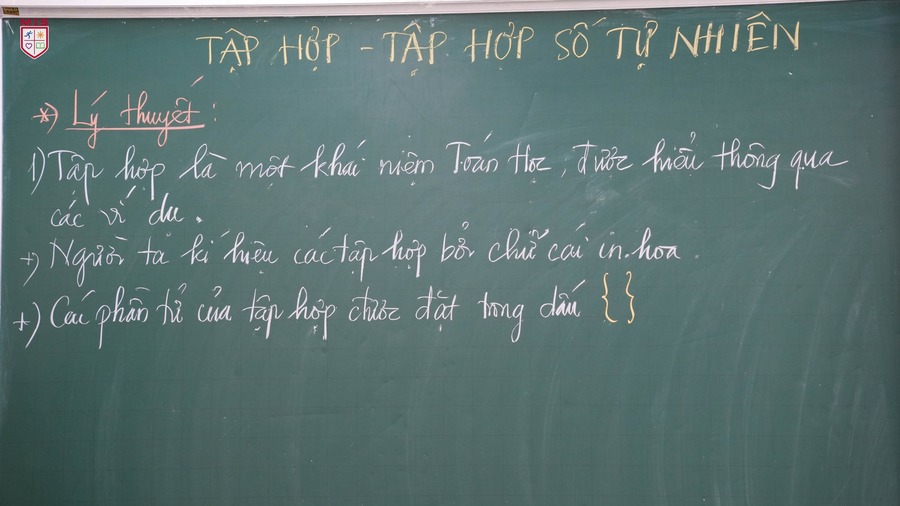 TẬP HỢP - TẬP HỢP SỐ TỰ NHIÊN
*) Lý thuyết:
1) Tập hợp là một khái niệm Toán Học, được hiểu thông qua
các ví dụ.
+) Người ta kí hiệu các tập hợp bởi chữ cái in hoa
+) Các phần tử của tập hợp được đặt trong dấu { }